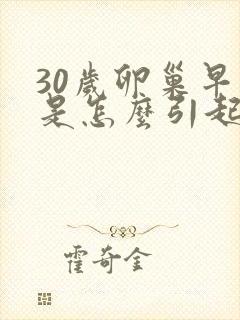 30歲卵巢早
是怎麼引起
霍奇金